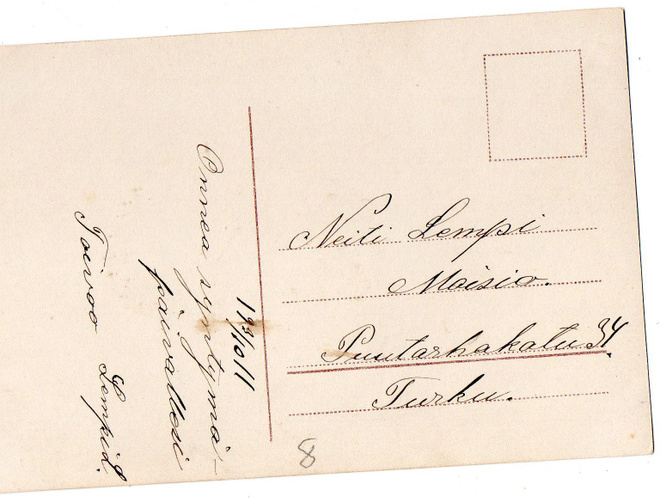 19 3/10 11
Onnea syntymä-
päivällesi
Toivoo Lempi L.
Neiti Lempi
Maisio.
Puutarhakatu 34.
Turku.
8